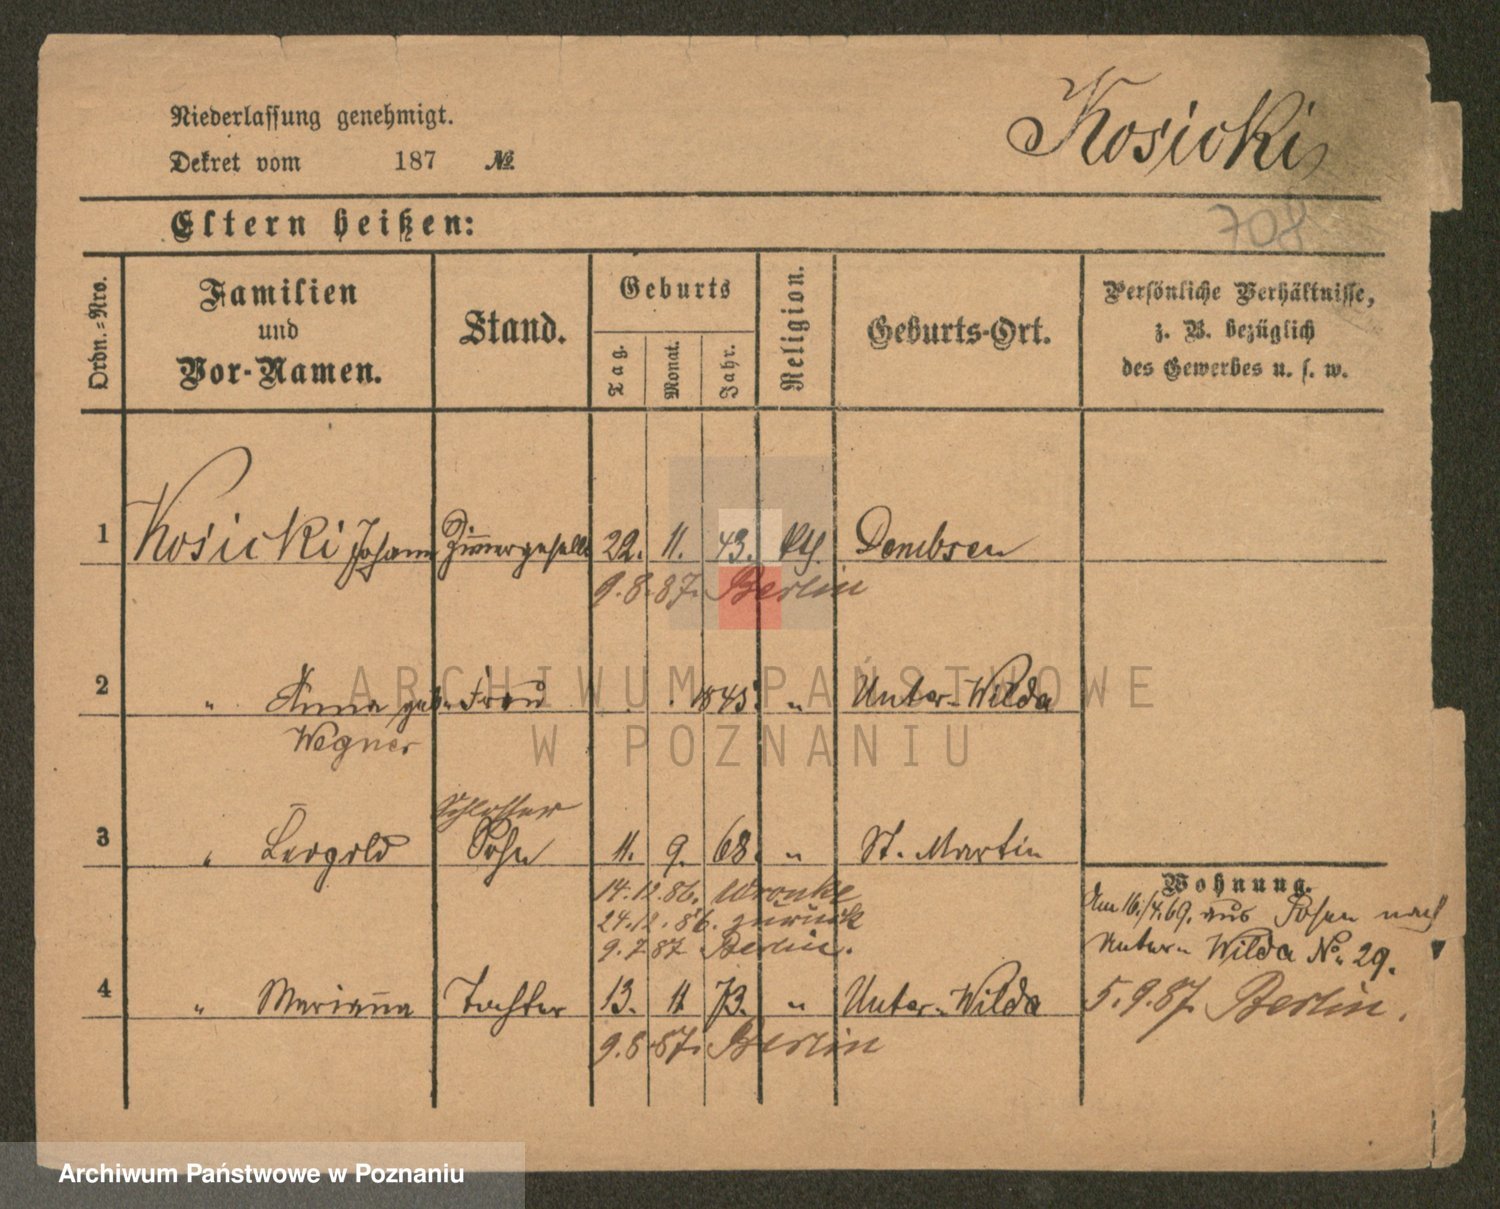 Niederlassung genehmigt.
Kosicki
Dekret vom 187 №
Eltern heißen:
708
Ordn.-Nro.
Familien und Vor-Namen.
Stand.
Geburts
Tag.
Monat.
Jahr.
Religion.
Geburts-Ort.
Persönliche Verhältnisse,
z. B. bezüglich
des Gewerbes u. s. w.
1 Kosicki Johann Zimmergeselle 22. 11. 43. kth. Dembsen
9.8.87. Berlin
2 " Anna geb. Frau 1845. " Unter-Wilda
Wegner
Schlosser
3 " Leopold Sohn 11. 9. 68. " St. Martin
Wohnung.
14.12.86. Wronke
Am 16./4.69. aus Posen nach
24.12.86. zurück
9.7.87 Berlin.
Unter-Wilda No 29.
4 " Marianna Tochter 13. 11 73. " Unter-Wilda
5.9.87. Berlin.
9.8.87. Berlin
ARCHIWUM PAŃSTWOWE
W POZNANIU
Archiwum Państwowe w Poznaniu